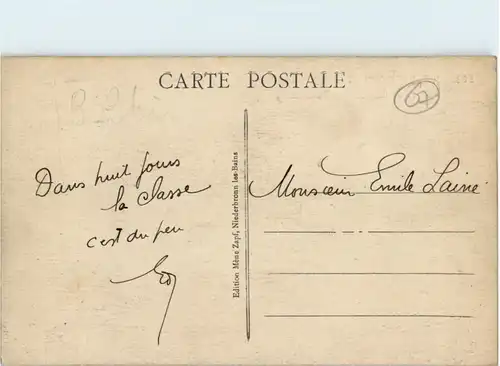 CARTE POSTALE
67
Dans huit jours
la classe
c'est du peu
Edition Mène Zapf, Niederbronn les-Bains
Monsieur Emile Lainé